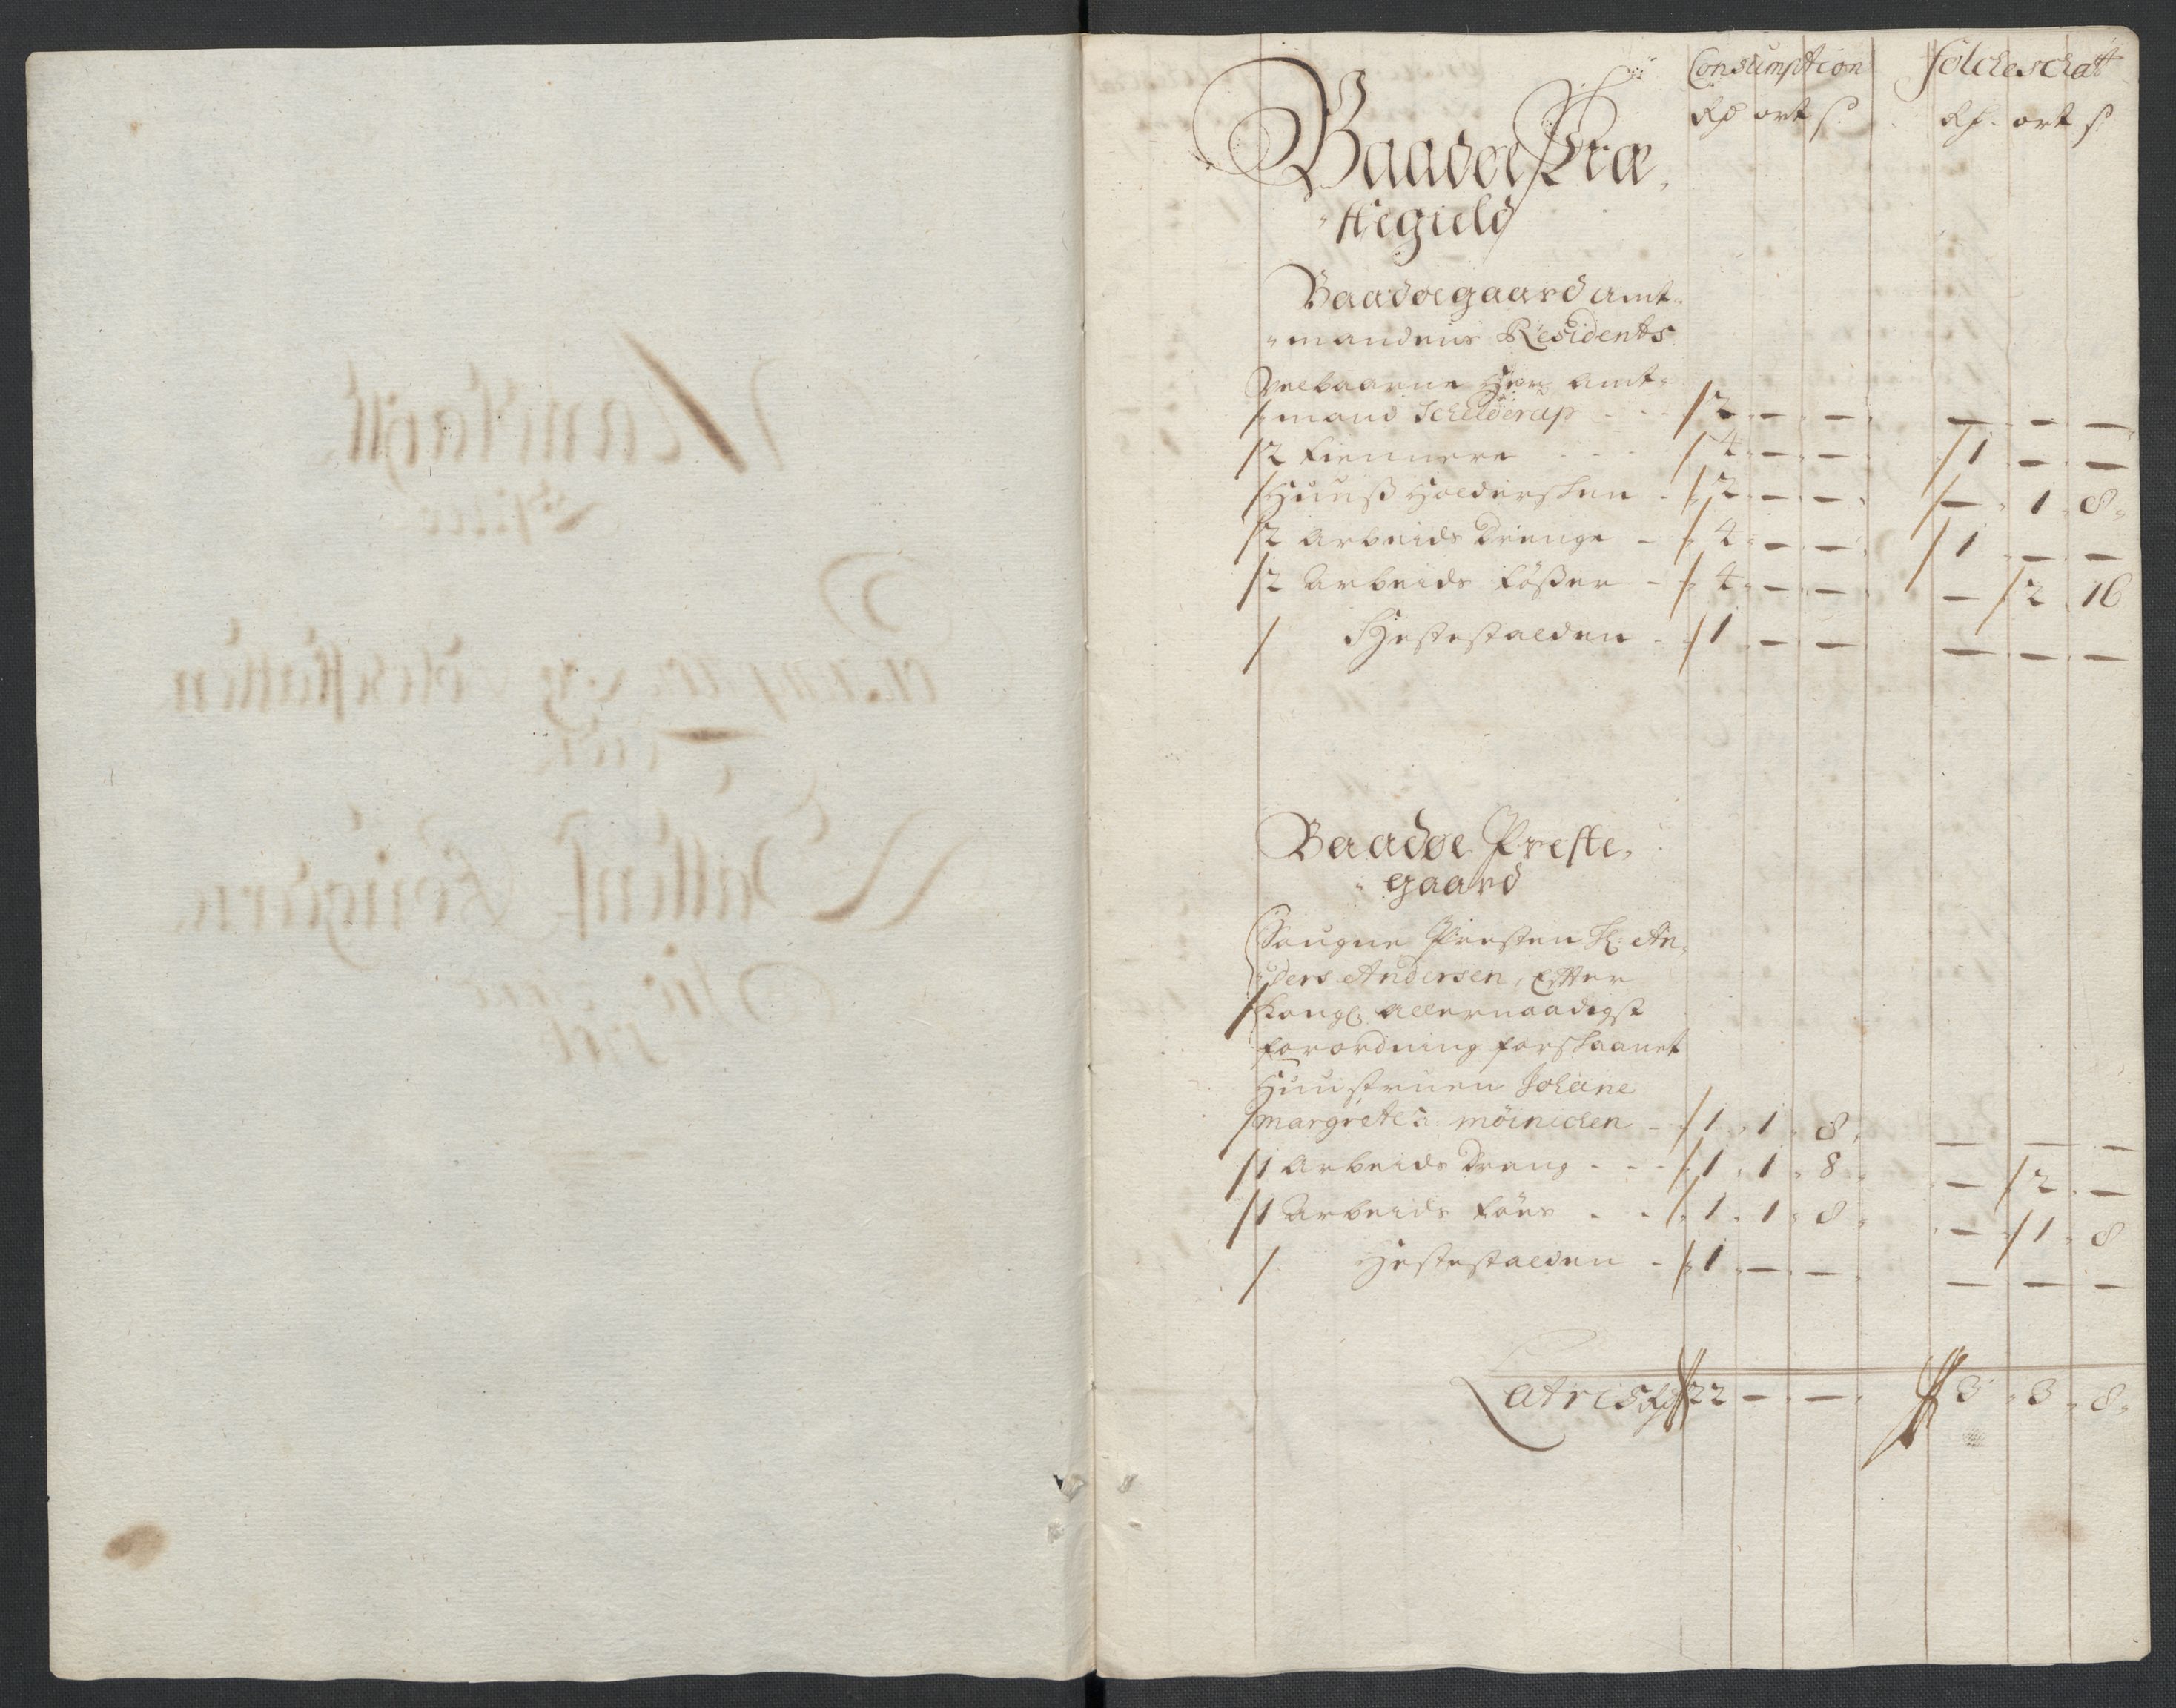 Consumption Folcheschatt
Rd ort s. Rd. ort s.
Baadøe Præ,
stegield
Baadøegaard Amt-
mandens Residents
Velbaarne Her Amt-
mand Schilderup 2 — — — — —
2 Tiennere 4 — — 1 — —
Huusholdersken 2 — — — 1 8
2 Arbeids Drenge 4 — — 1 — —
2 Arbeids Tøßer 4 — — — 2 16
Hestestalden 1 — — — — —
Baadøe Preste,
gaard
Sougne Presten Hr. An-
ders Andersen, Efter
Kongl. allernaadigst
forordning forskaanet
Huustruen Johane
Margrete Møinichen 1 1 8 — — —
1 Arbeids Dreng 1 1 8 — 2 —
1 Arbeids Tøes 1 1 8 — 1 8
Hestestalden 1 — — — — —
Latris Rd 22 — — 3 3 8